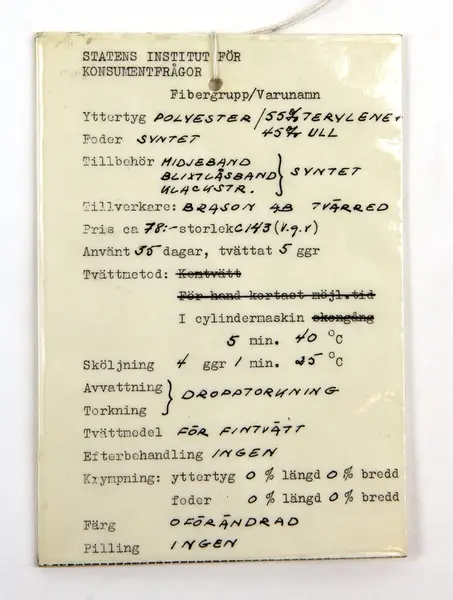 STATENS INSTITUT FÖR
KONSUMENTFRÅGOR
Fibergrupp/Varunamn
Yttertyg POLYESTER / 55% TERYLENE
45% ULL
Foder SYNTET
Tillbehör MIDJEBAND
BLIXTLÅSBAND } SYNTET
KLACKSTR.
Tillverkare: BRASON AB TVÄRRED
Pris ca 78:- storlek C143 (v.g.v)
Använt 35 dagar, tvättat 5 ggr
Tvättmetod: Kemtvätt
För hand kortast möjl.tid
I cylindermaskin skongång
5 min. 40 °C
Sköljning 4 ggr 1 min. 25 °C
Avvattning
} DROPPTORKNING
Torkning
Tvättmedel FÖR FINTVÄTT
Efterbehandling INGEN
Krympning: yttertyg 0 % längd 0 % bredd
foder 0 % längd 0 % bredd
Färg OFÖRÄNDRAD
Pilling INGEN